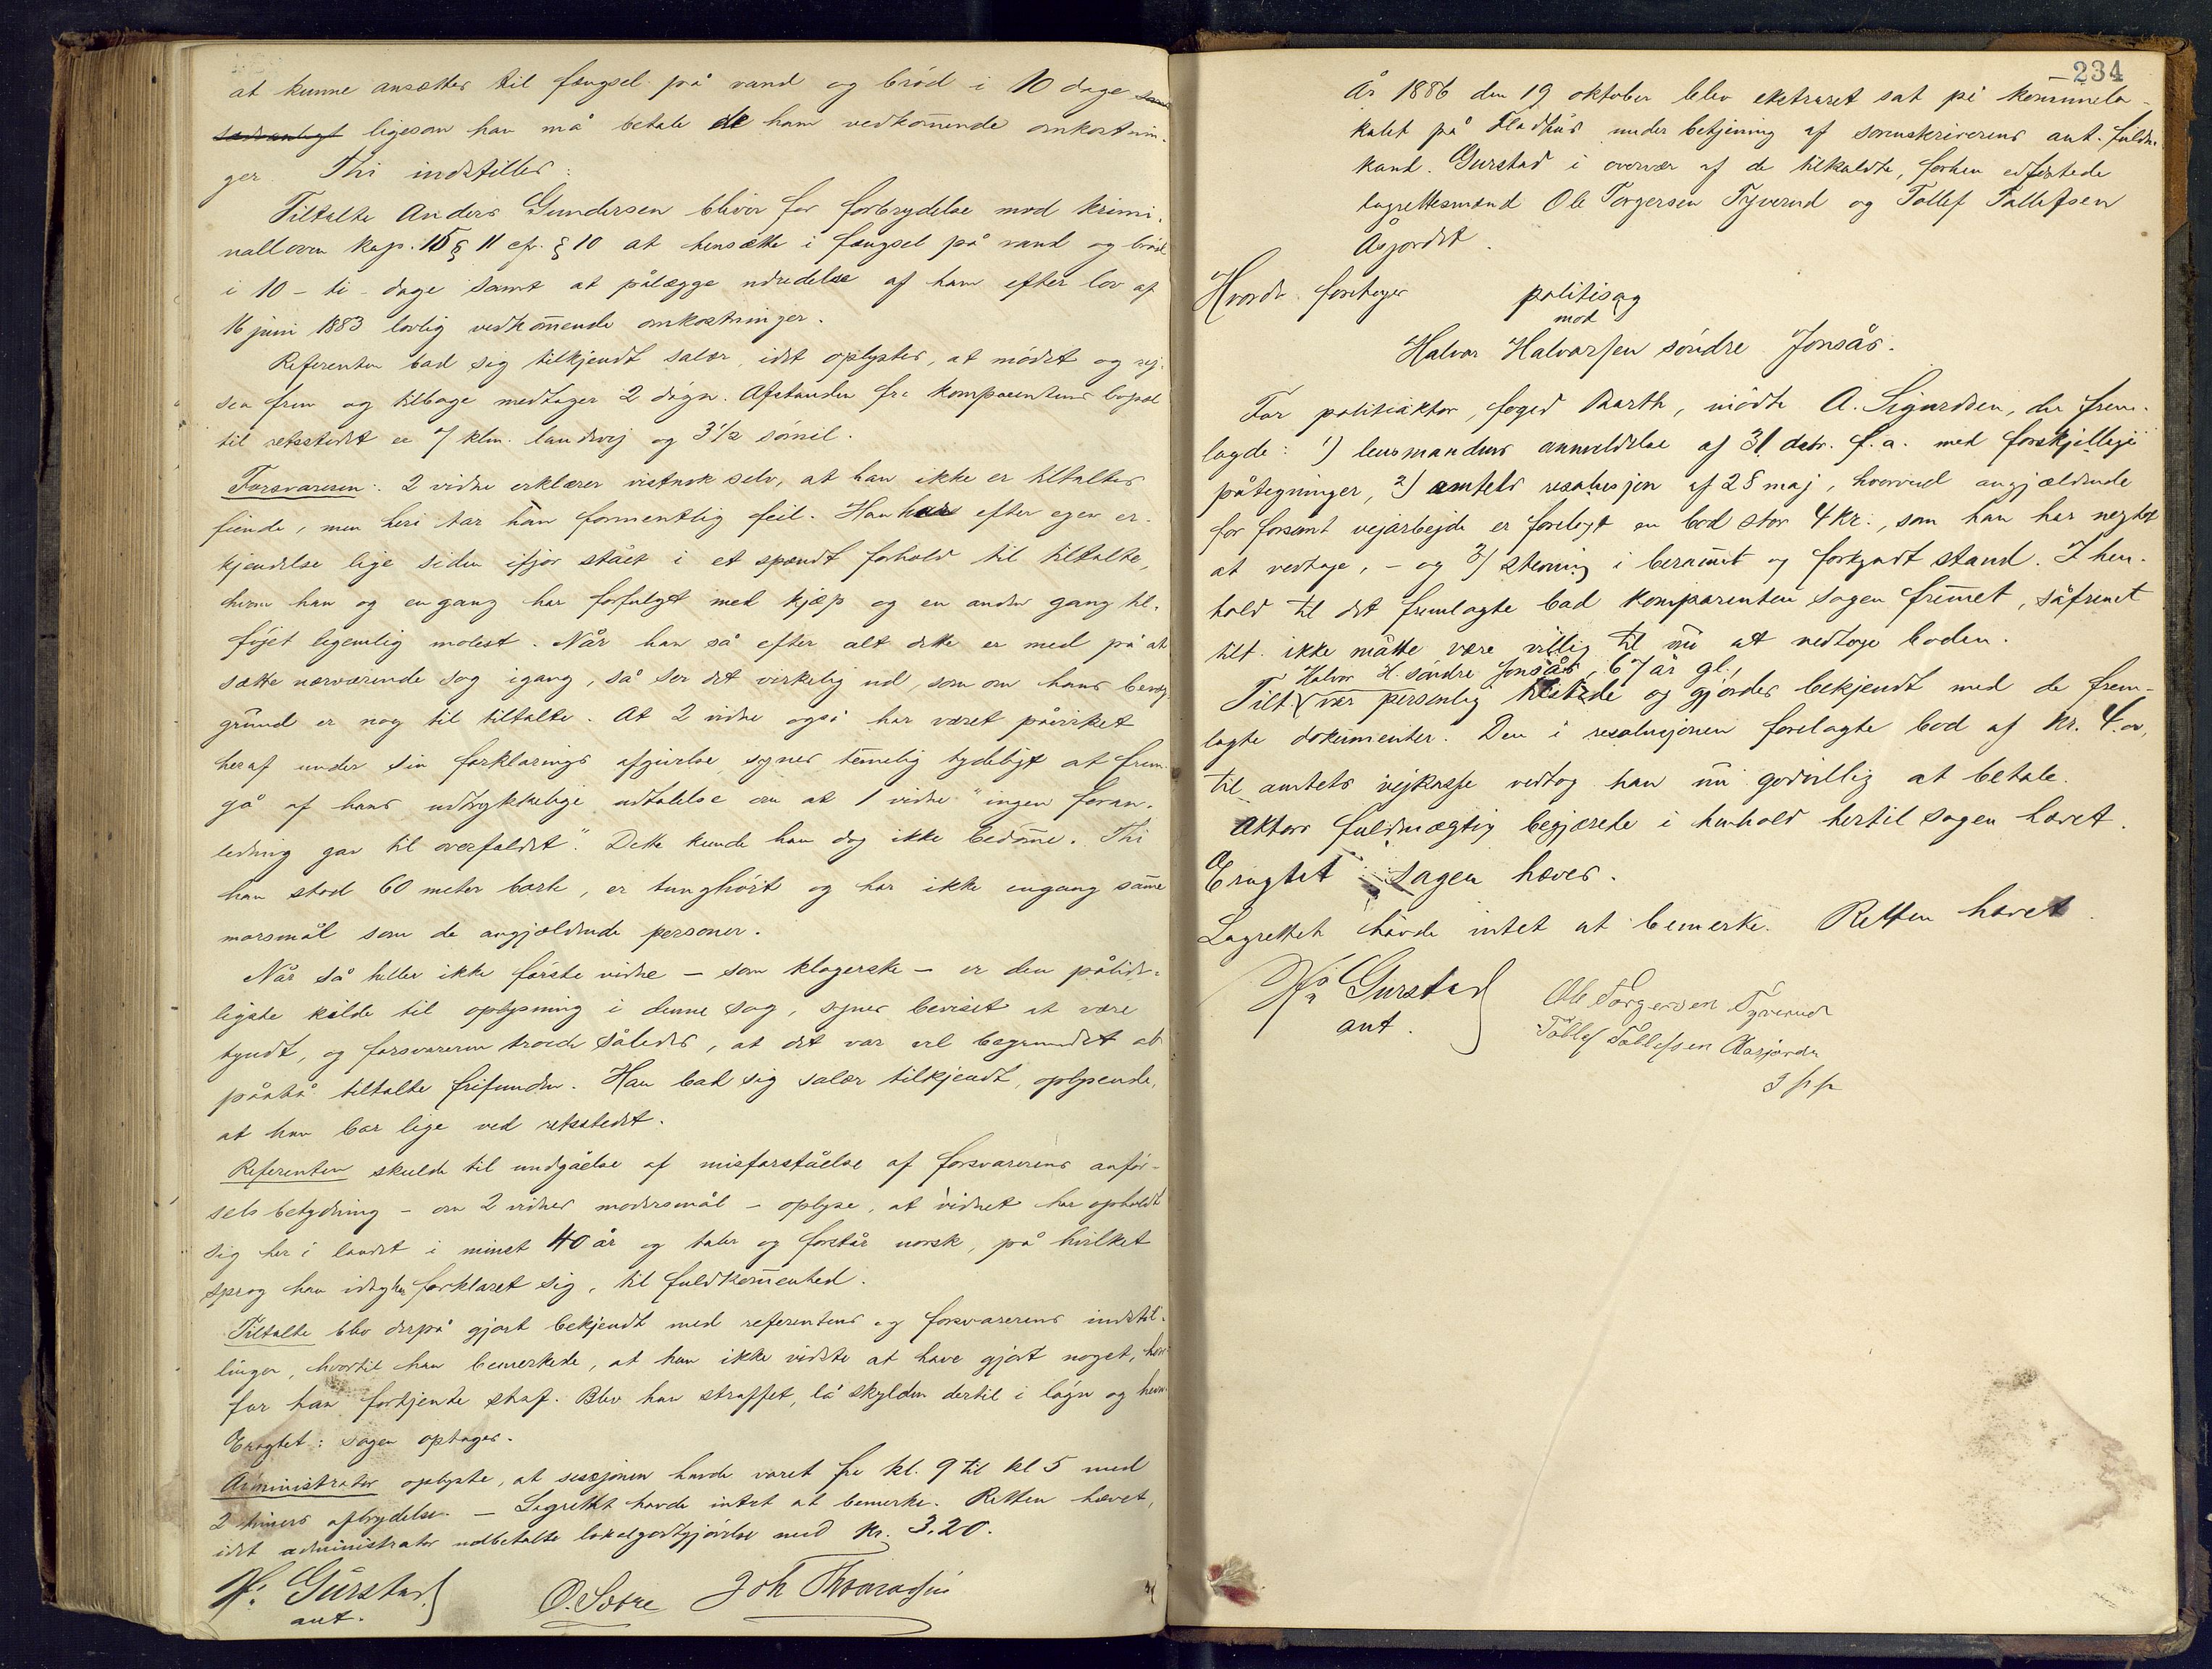 at kunne ansættes til fængsel på vand og brød i 10 dage
ligesom han må betale de ham vedkommende omkostnin-
ger. Thi indstilles:
Tiltalte Anders Gundersen bliver for forbrydelse mod krimi-
nalloven kap. 15 § 11 cfr. § 10 at hensætte i fængsel på vand og brød
i 10 - ti - dage samt at pålægge udredelse af ham efter lov af
16 juni 1883 lovlig vedkom̄ende omkostninger.
Referenten bad sig tilkjendt salær, idet oplystes, at mødet og rej-
sen frem og tilbage medtager 2 døgn. Afstanden fra komparentens bopæl
til retsstedet er 7 klm. landvej og 3 1/2 sømil.
Forsvareren: 2 vidne erklærer vistnok selv, at han ikke er tiltaltes
fiende, men heri tar han formentlig feil. Han har efter egen er-
kjendelse lige siden ifjor stået i et spændt forhold til tiltalte,
hvem han og en gang har forfulgt med kjæp og en anden gang til-
føjet legemlig molest. Når han så efter alt dette er med på at
sætte nærværende sag igang, så ser det virkelig ud, som om hans bevæg-
grund er nag til tiltalte. At 2 vidne også har været påvirket
heraf under sin forklarings afgivelse synes temelig tydeligt at frem-
gå af hans udtrykkelige udtalelse om at 1 vidne "ingen foran-
ledning gav til overfaldet". Dette kunde han dog ikke bedøm̄e. Thi
han stod 60 meter borte, er tunghørt og har ikke engang sam̄e
morsmål som de angjældende personer.
Når så heller ikke første vidne - som klagerske - er den pålide-
ligste kilde til oplysning i denne sag, synes beviset at være
tyndt, og forsvareren troede således, at det var vel begrundet at
påstå tiltalte frifunden. Han bad sig salær tilkjendt, oplysende,
at han bor lige ved retsstedet.
Referenten skulde til undgåelse af misforståelse af forsvarerens anfør-
sels betydning - om 2 vidnes modersmål - oplyse, at vidnet har opholdt
sig her i landet i minst 40 år og taler og forstår norsk, på hvilket
sprog han forklaret sig, til fuldkom̄enhed.
Tiltalte blev derpå gjort bekjendt med referentens og forsvarerens indstil-
linger, hvortil han bemerkede, at han ikke vidste at have gjort noget, hvor-
for han fortjente straf. Blev han straffet, lå skylden dertil i løgn og hevn.
Eragtet: sagen optages.
Administrator oplyste, at sessjonen havde varet fra kl. 9 til kl 5 med
2 timers afbrydelse. - Lagrettet havde intet at bemerke. Retten hævet,
idet administrator udbetalte lokalgodtgjørelse med kr. 3.20.
Gurstad
ant.
O. Sætre Joh Thomassen
234
År 1886 den 19 oktober blev ekstraret sat på kom̄unelo-
kalet på Fladhus under betjening af sorenskriverens aut. fuldm.
kand. Gurstad i overvær af de tilkaldte, forhen edfæstede
lagrettesmænd Ole Torgersen Tyverud og Tollef Tollefsen
Åsjordet.
Hvorda foretoges politisag
mod
Halvor Halvorsen søndre Jonsås.
For politiaktor, foged Barth, mødte A. Sigurdsen, der frem-
lagde: 1) lensmandens anmeldelse af 31 decbr. f.a. med forskjellige
påtegninger, 2) amtets resolusjon af 28 maj, hvorved angjældende
for forsømt vejarbejde er forelagt en bod stor 4 kr., som han har negtet
at vedtage, - og 3) stevning i beram̄et og forkyndt stand. I hen-
hold til det fremlagte bad komparenten sagen frem̄et, såfremt
tilt. ikke måtte være villig til nu at vedtage boden.
Halvor H. søndre Jonsås, 67 år gl.,
Tilt. var personlig tilstede og gjordes bekjendt med de frem-
lagte dokumenter. Den i resolusjonen forelagte bod af kr. 4.00,
til amtets vejkasse vedtog han nu godvillig at betale.
Aktors fuldmægtig begjærede i henhold hertil sagen hævet.
Eragtet: sagen hæves.
Lagrettet havde intet at bemerke. Retten hævet.
Gurstad
ant.
Ole Torgersen Tyverud
Tollef Tollefssen Aasjorde